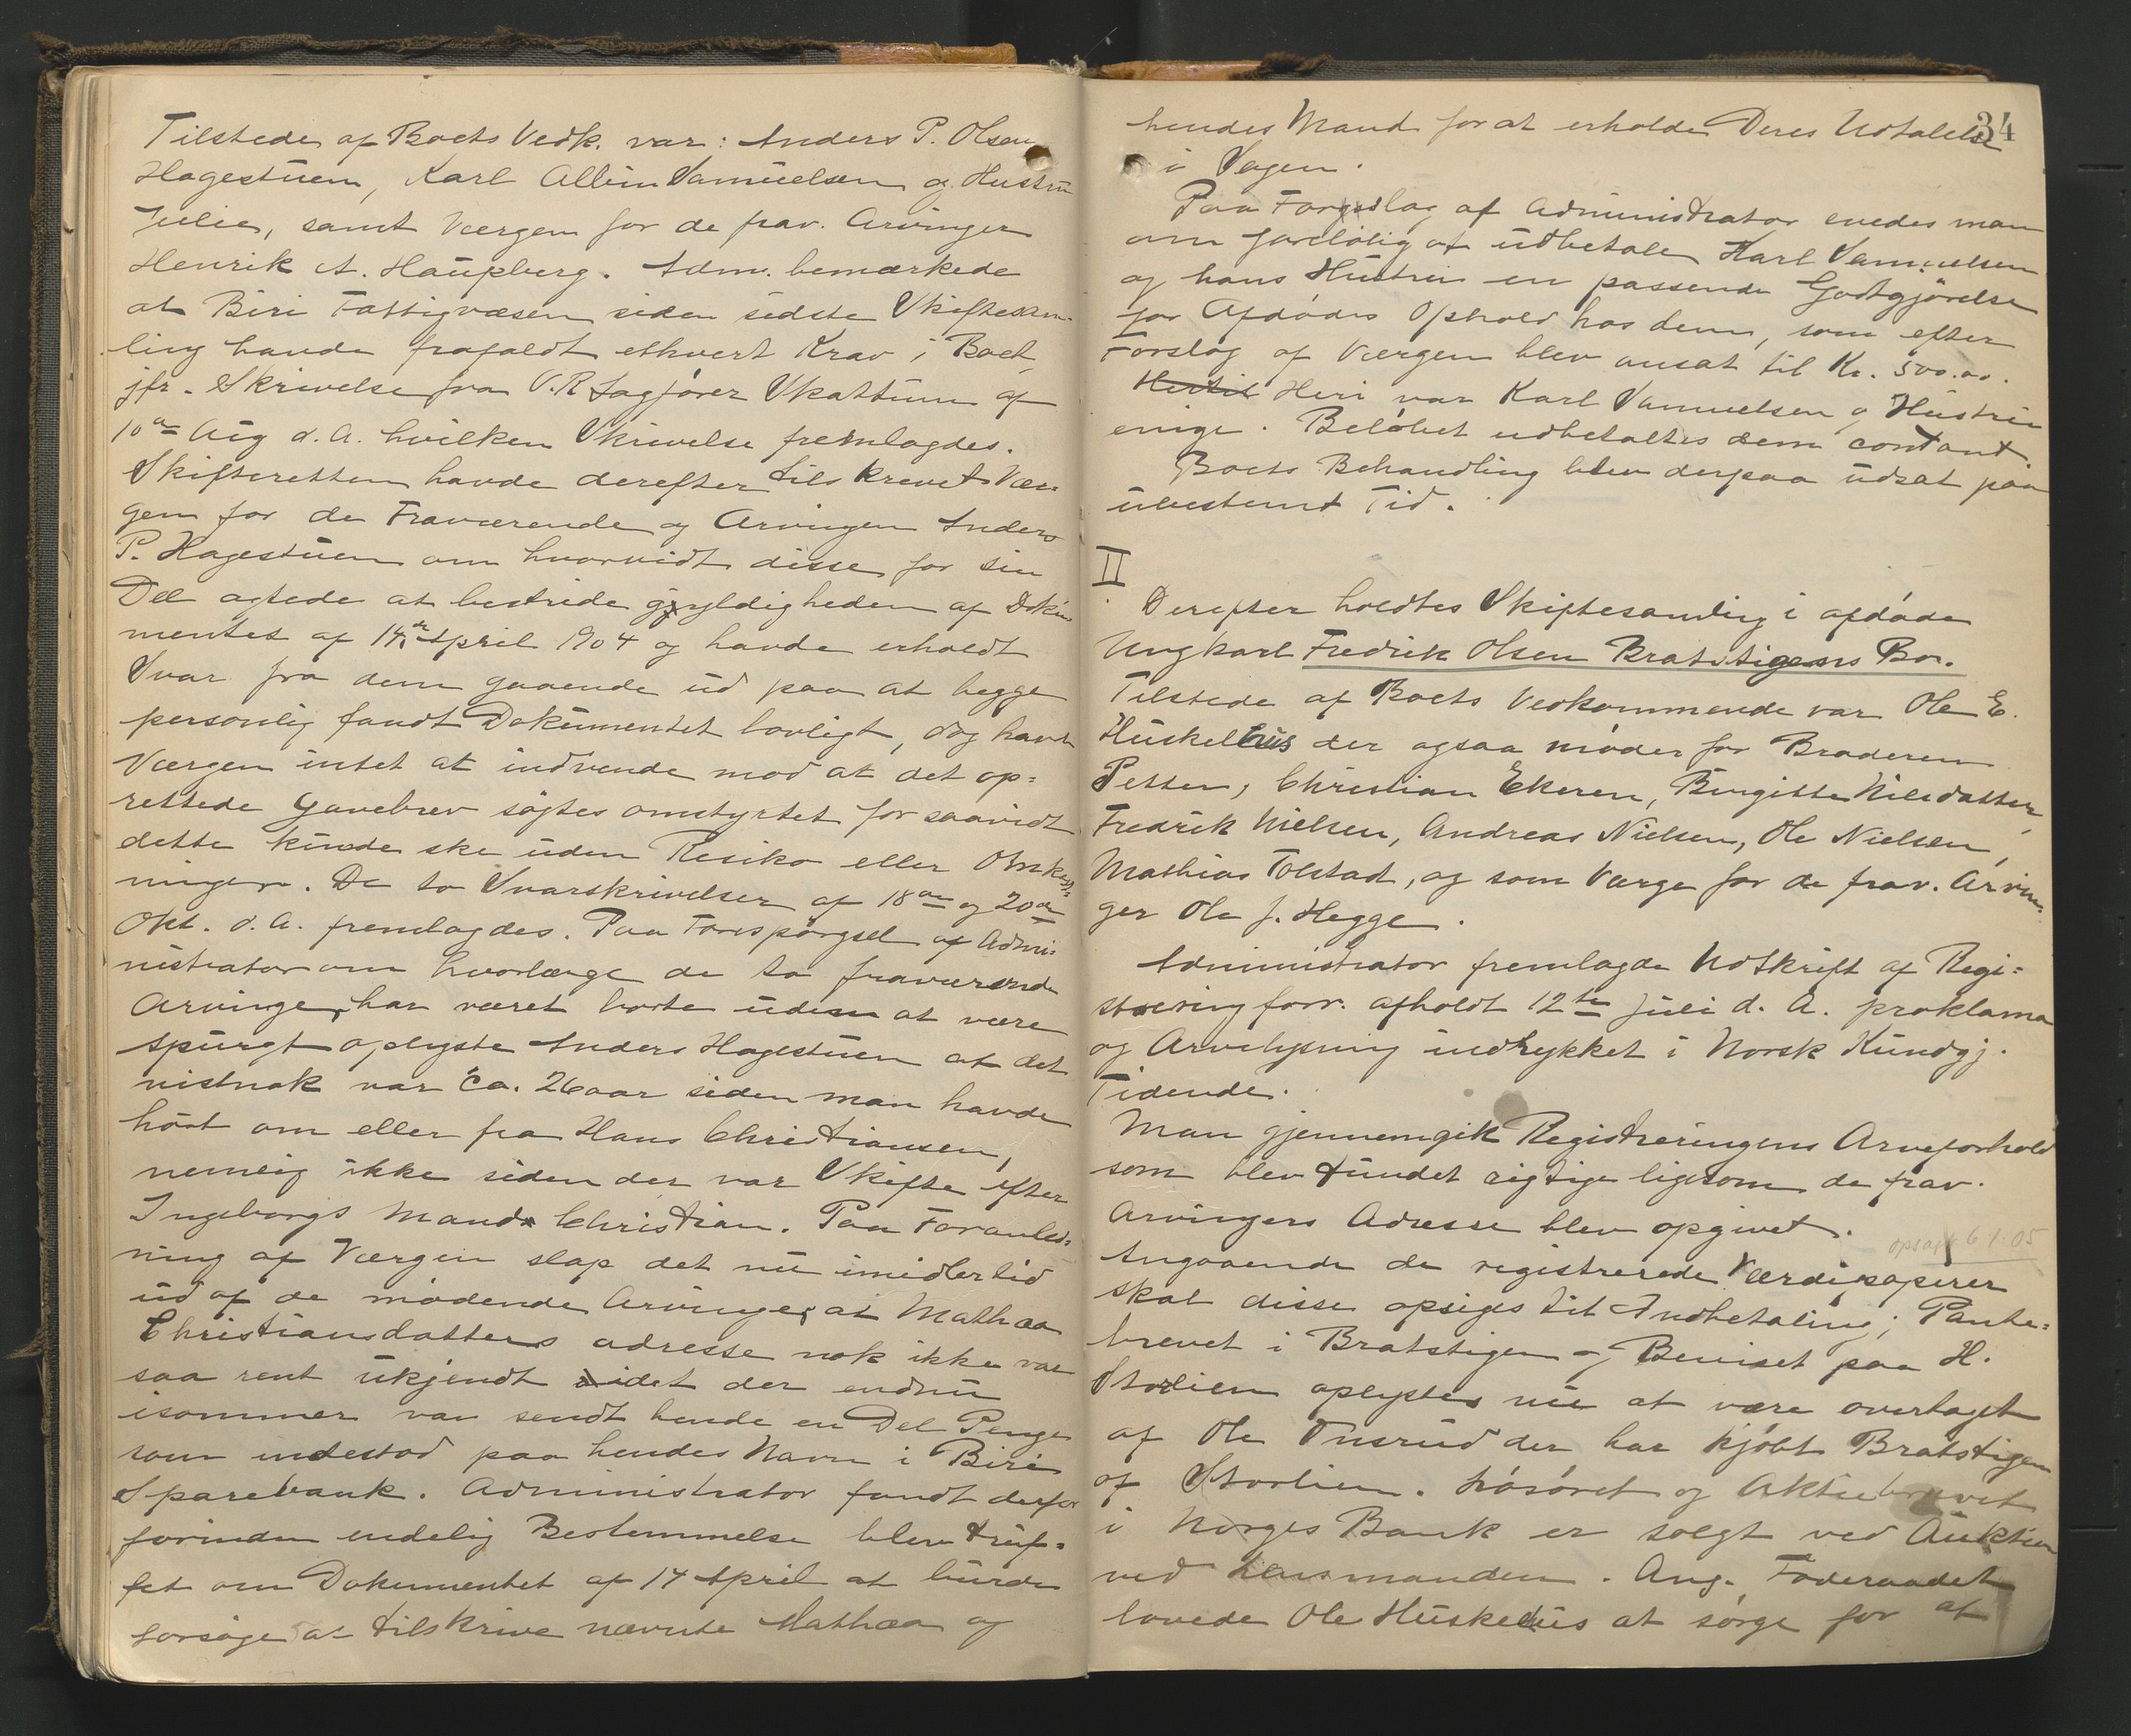 Tilstede af Boets Vedk. var: Anders P. Olsen
Hagestuen, Karl Albin Samuelsen og Hustru
Julie, samt Værgen for de frav. Arvinger
Henrik A. Haugberg. Adm. bemærkede
at Biri Fattigvæsen siden sidste Skiftesam-
ling havde frafaldt ethvert Krav i Boet
jfr. Skrivelse fra O.R Sagfører Skattum af
10de Aug d. A. hvilken Skrivelse fremlagdes.
Skifteretten havde derefter tilskrevet Vær-
gen for de Fraværende og Arvingen Anders
P. Hagestuen om hvorvidt disse for sin
Del agtede at bestride gyldigheden af Doku-
mentet af 14de April 1904 og havde erholdt
Svar fra dem gaaende ud paa at begge
personlig fandt Dokumentet lovligt, dog havde
Værgen intet at indvende mod at det op=
rettede Gavebrev søgtes omstyrtet for saavidt
dette kunde ske uden Resiko eller Omkost=
ninger. De to Svarskrivelser af 18de og 20de
Okt. d. A. fremlagdes. Paa Forespørgsel af Admi=
nistrator om hvorlænge de to fraværende
Arvinger har været borte uden at være
spurgt oplyste Anders Hagestuen at det
vistnok var ca. 26 aar siden man havde
hørt om eller fra Hans Christiansen,
nemlig ikke siden der var Skifte efter
Ingeborgs Mand Christian. Paa Foranled=
ning af Værgen slap det nu imidlertid
ud af de mødende Arvinger at Mathea
Christiansdatters adresse nok ikke var
saa rent ukjendt idet der endnu
isommer var sendt hende en Del Penge
som indestod paa hendes Navn i Biri
Sparebank. Administrator fandt derfor
forinden endelig Bestemmelse blev truf=
fet om Dokumentet af 14 April at burde
forsøge at tilskrive nævnte Mathea og
34
hendes Mand for at erholde Deres Udtalelse
i Sagen.
Paa Forslag af Administrator enedes man
om foreløbig at udbetale Karl Samuelsen
og hans Hustru en passende Godtgjørelse
for Afdødes Ophold hos dem, som efter
Forslag af Værgen blev ansat til Kr. 500.00.
Hertil Heri var Karl Samuelsen og Hustru
enige. Beløbet udbetaltes dem contant.
Boets Behandling blev derpaa udsat paa
ubestemt Tid.
II
Derefter holdtes Skiftesamling i afdøde
Ungkarl Fredrik Olsen Bratstigens Bo.
Tilstede af Boets Vedkommende var Ole E.
Huskelhus der ogsaa møder for Broderen
Petter, Christian Ekeren, Birgitte Nilsdatter,
Fredrik Nielsen, Andreas Nielsen, Ole Nielsen,
Mathias Tolstad, og som Værge for de frav. Arvin=
ger Ole J. Hegge.
Administrator fremlagde Udskrift af Regi=
streringforr. afholdt 12te Juli d. A. proklama
og Arvelysning indrykket i Norsk Kundgj.
Tidende.
Man gjennemgik Registreringens Arveforhold
som blev fundet rigtige ligesom de frav.
Arvingers Adresse blev opgivet.
opsagt 6/1.05
Angaaende de registrerede Værdipapirer
skal disse opsiges til Indbetaling; Pante=
brevet i Bratstigen og Beviset paa H.
Storlien oplystes nu at være overtaget
af Ole Onsrud der har kjøbt Bratstigen
af Storlien. Løsøret og Aktiebrevet
i Norges Bank er solgt ved Auktion
ved Lensmanden. Ang. Føderaadet
lovede Ole Huskelhus at sørge for at